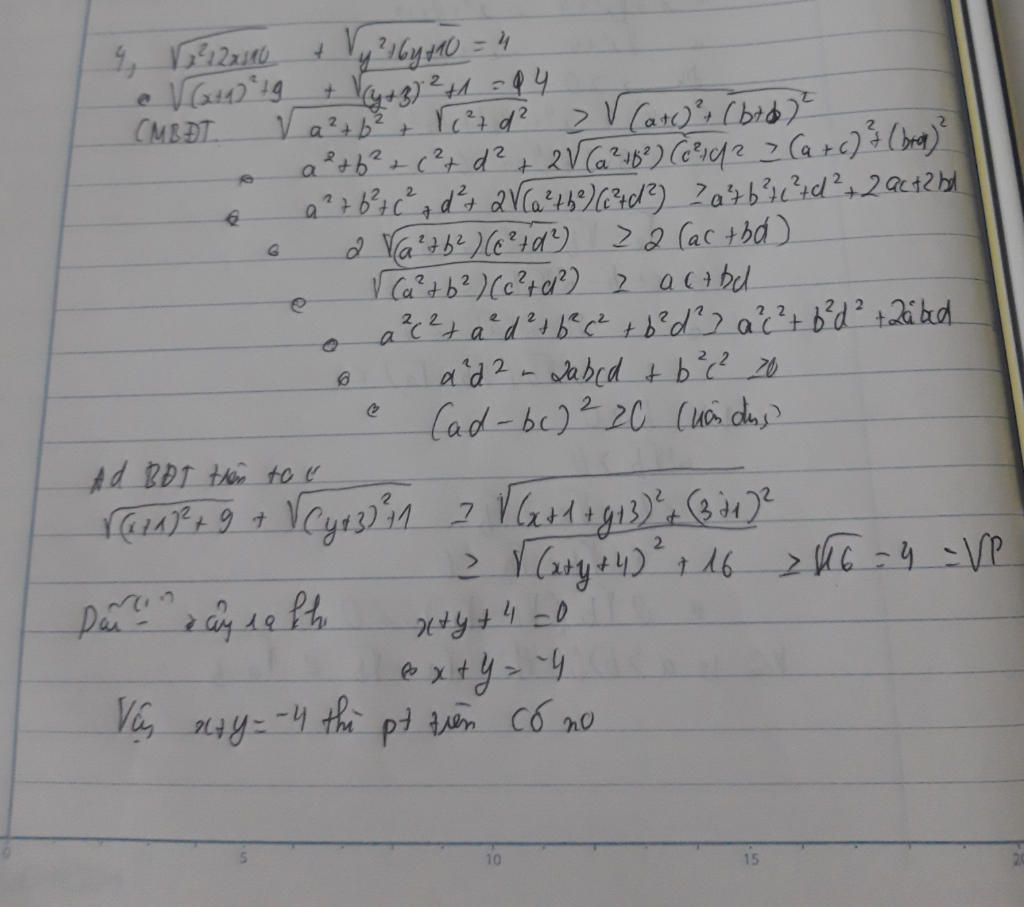 4, √x²+2x+10 + √y²+6y+10 = 4
√(x+1)²+9 + √(y+3)²+1 = 4
CMBĐT √a²+b² + √c²+d² ≥ √(a+c)²+(b+d)²
a²+b²+c²+d² + 2√(a²+b²)(c²+d² ≥ (a+c)²+(b+d)²
a²+b²+c²+d²+2√(a²+b²)(c²+d²) ≥ a²+b²+c²+d²+2ac+2bd
2√(a²+b²)(c²+d²) ≥ 2(ac+bd)
√(a²+b²)(c²+d²) ≥ ac+bd
a²c²+a²d²+b²c²+b²d² ≥ a²c²+b²d²+2abcd
a²d² - 2abcd + b²c² ≥0
(ad-bc)² ≥0 (luôn đúng)
Ad BĐT trên ta có
√(x+1)²+9 + √(y+3)²+1 ≥ √(x+1+y+3)²+(3+1)²
≥ √(x+y+4)²+16 ≥ √16 = 4 = VP
Dấu "=" xảy ra khi x+y+4=0
x+y=-4
Vậy x+y=-4 thì pt trên có no
0 5 10 15 20